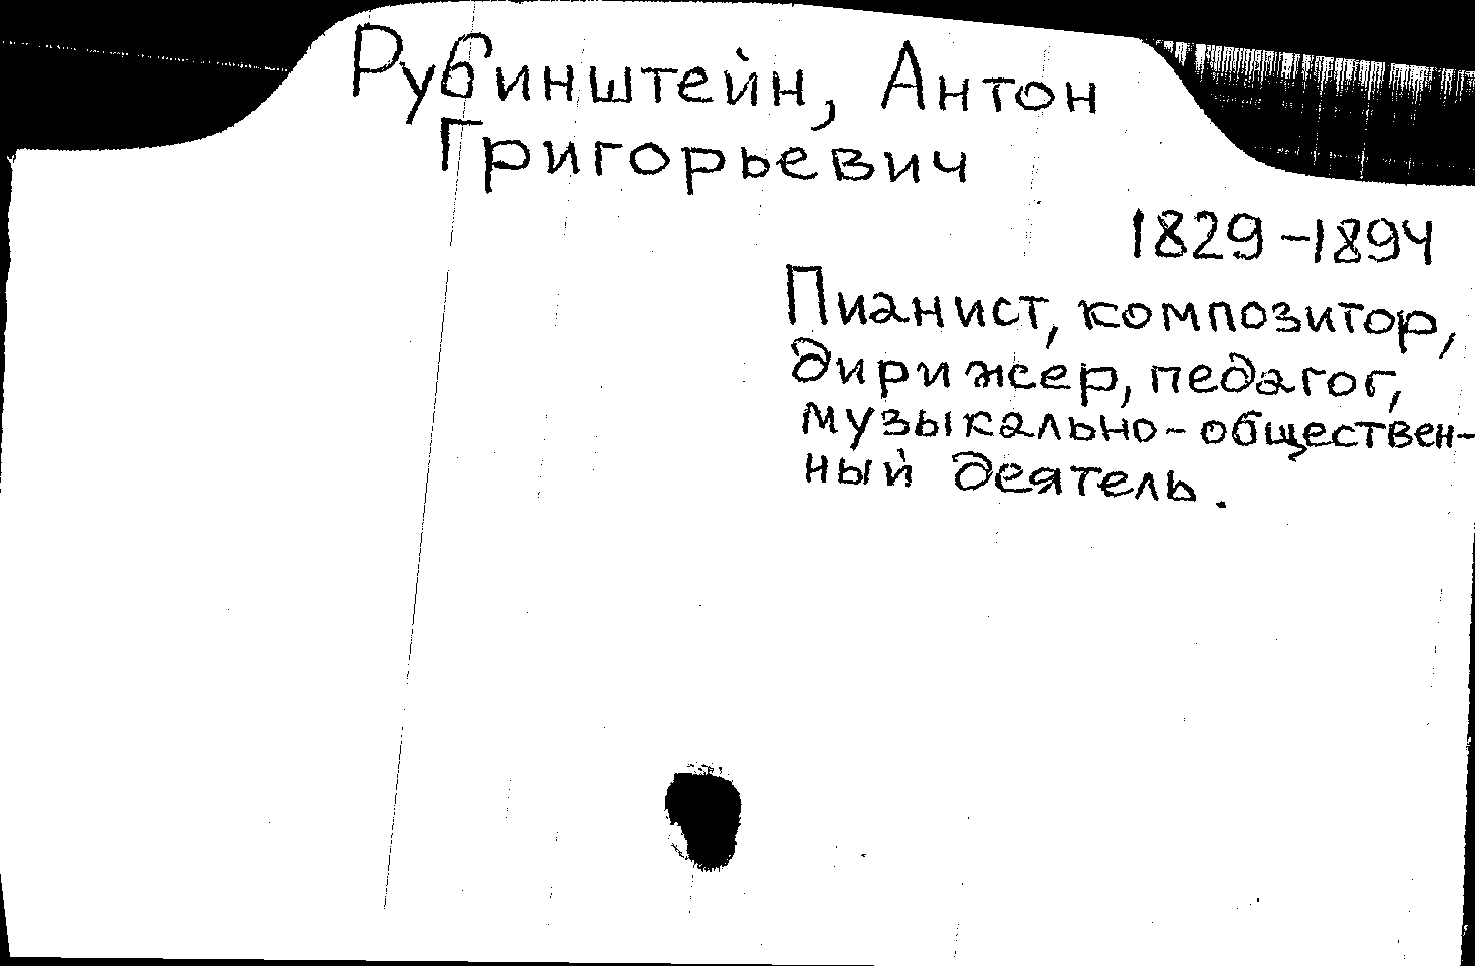 Рубинштейн, Антон
Григорьевич
1829-1894
Пианист, композитор,
дирижер, педагог,
музыкально-обществен-
ный деятель.